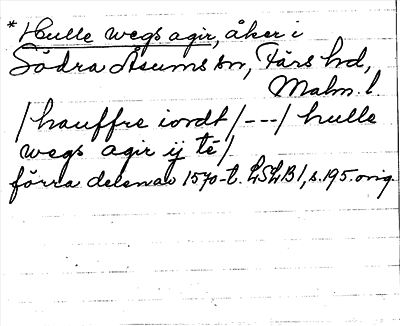 * Hulle wegs agir, åker i
Södra Åsums sn, Färs hd,
Malm. l.
/hauffre iordt/---/ hulle
wegs agir ij té/
förra delen av 1570-t. LSLB1, s. 195. orig.